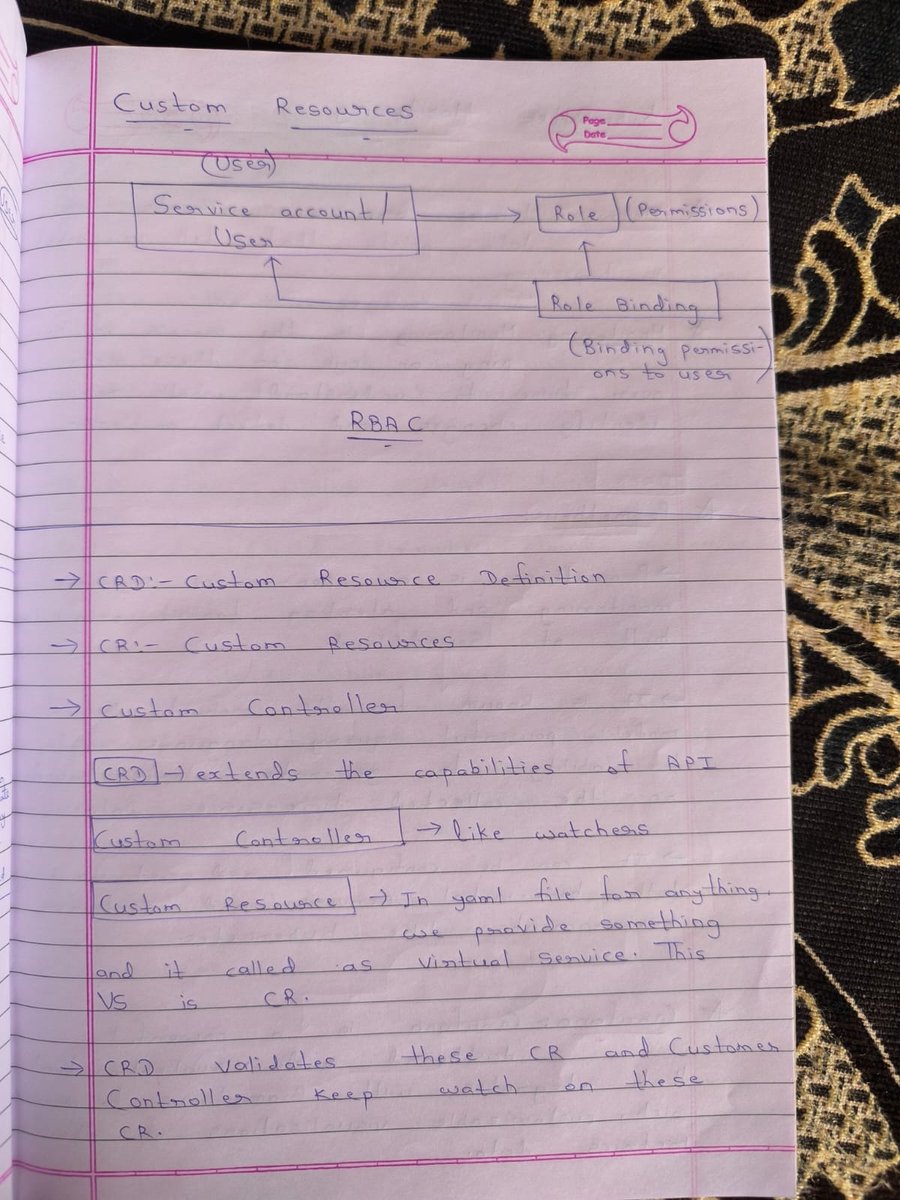 Custom Resources
Page
Date
(User)
Service account/
User
Role (Permissions)
Role Binding
(Binding permissi-
ons to user)
RBAC
→ CRD:- Custom Resource Definition
→ CR:- Custom Resources
→ Custom Controller
CRD → extends the capabilities of API
Custom Controller → like watchers
Custom Resource → In yaml file for anything,
we provide something
and it called as Virtual Service. This
VS is CR.
→ CRD validates these CR and Customer
Controller keep watch on these
CR.